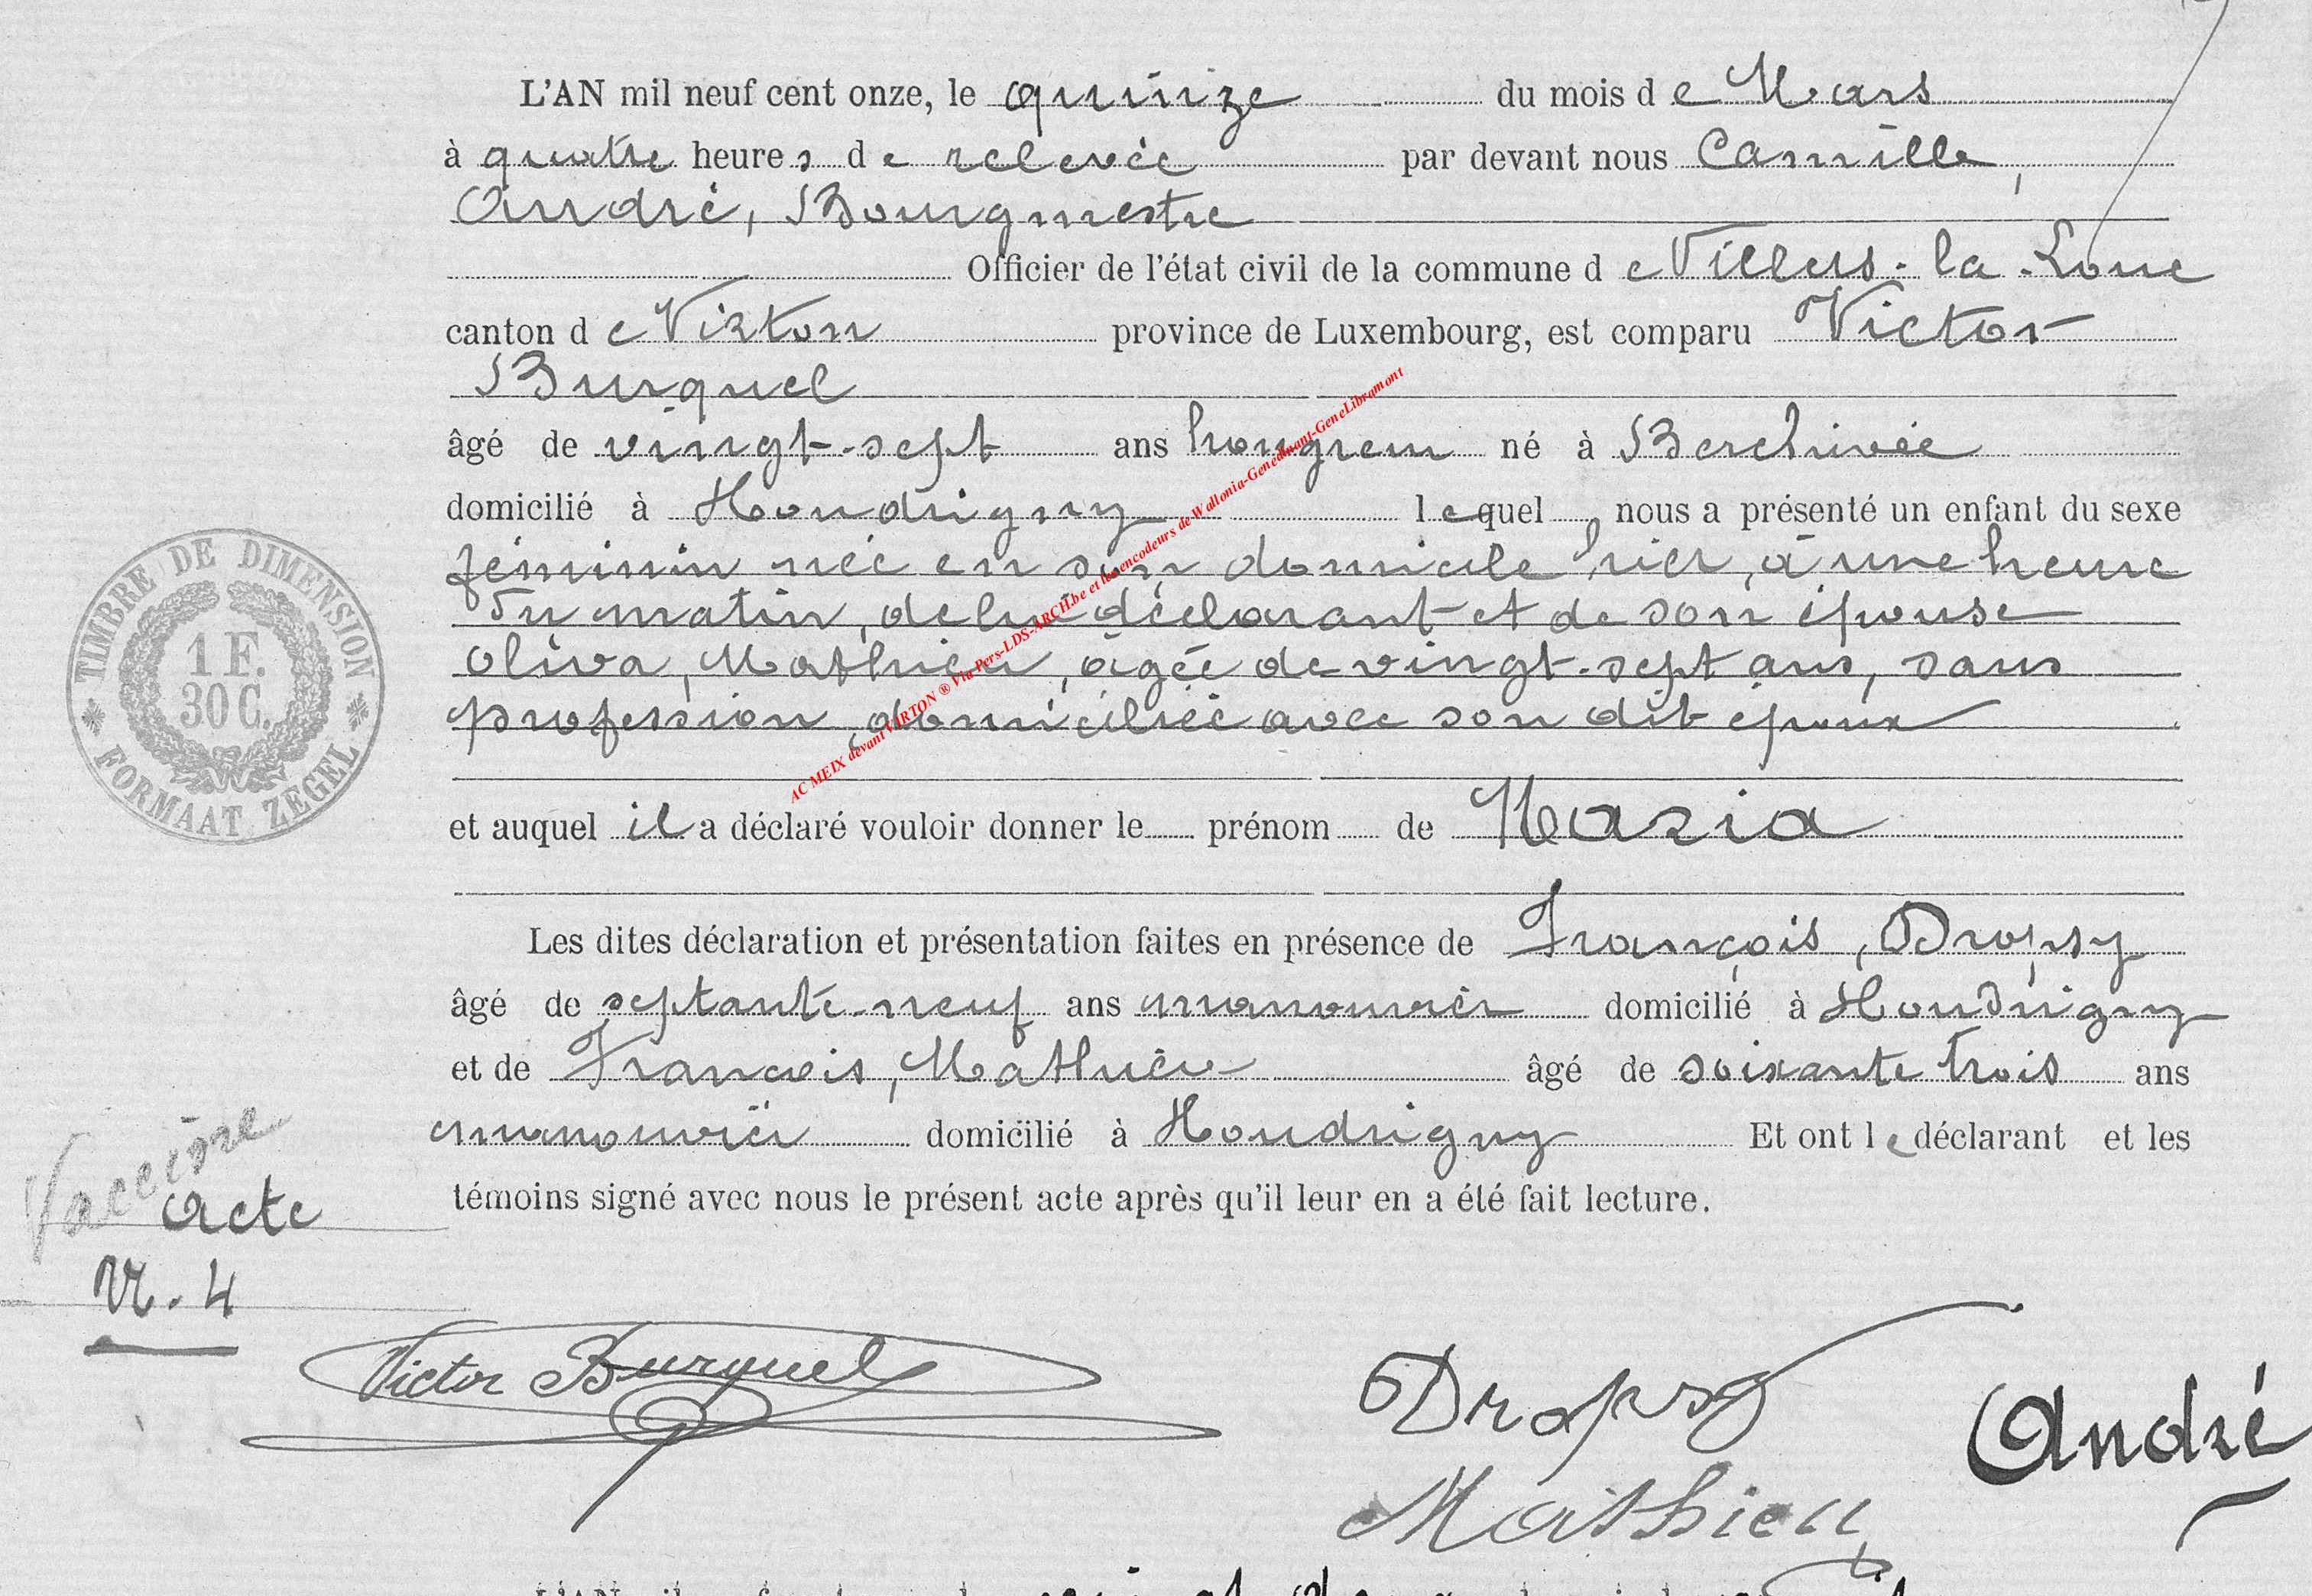 L'AN mil neuf cent onze, le quinze du mois de Mars
à quatre heures de relevée par devant nous Camille,
André, Bourgmestre
Officier de l'état civil de la commune de Villers-la-Loue
canton de Virton province de Luxembourg, est comparu Victor
Burquel
âgé de vingt-sept ans hongreur né à Berchivée
domicilié à Houdrigny lequel nous a présenté un enfant du sexe
féminin née en son domicile hier, à une heure
du matin, de lui déclarant et de son épouse
Oliva, Mathieu, agée de vingt-sept ans, sans
profession, domiciliée avec son dit époux
et auquel il a déclaré vouloir donner le prénom de Maria
Les dites déclaration et présentation faites en présence de François, Dropsy
âgé de septante-neuf ans manouvrier domicilié à Houdrigny
et de François, Mathieu âgé de soixante trois ans
manouvrier domicilié à Houdrigny Et ont le déclarant et les
témoins signé avec nous le présent acte après qu'il leur en a été fait lecture.
TIMBRE DE DIMENSION
1 F.
30 C.
FORMAAT ZEGEL
AC MEIX devant VIRTON ® Via Pers-LDS-ARCH.be et les encodeurs de Wallonia-Genedinant-GeneLibramont
Vaccine
Acte
N. 4
Victor Burquel
Dropsy
André
Mathieu